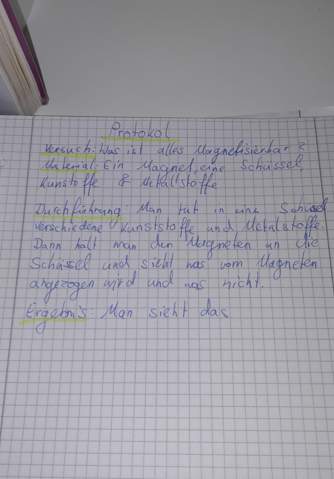 Protokol
Versuch: Was ist alles Magnetisierbar?
Material: Ein Magnet, eine Schüssel
Kunstoffe & Metallstoffe
Durchführung: Man tut in eine Schüssel
verschiedene Kunststoffe und Metalstoffe.
Dann hält man den Magneten an die
Schüssel und sieht was vom Magneten
angezogen wird und was nicht.
Ergebnis Man sieht das